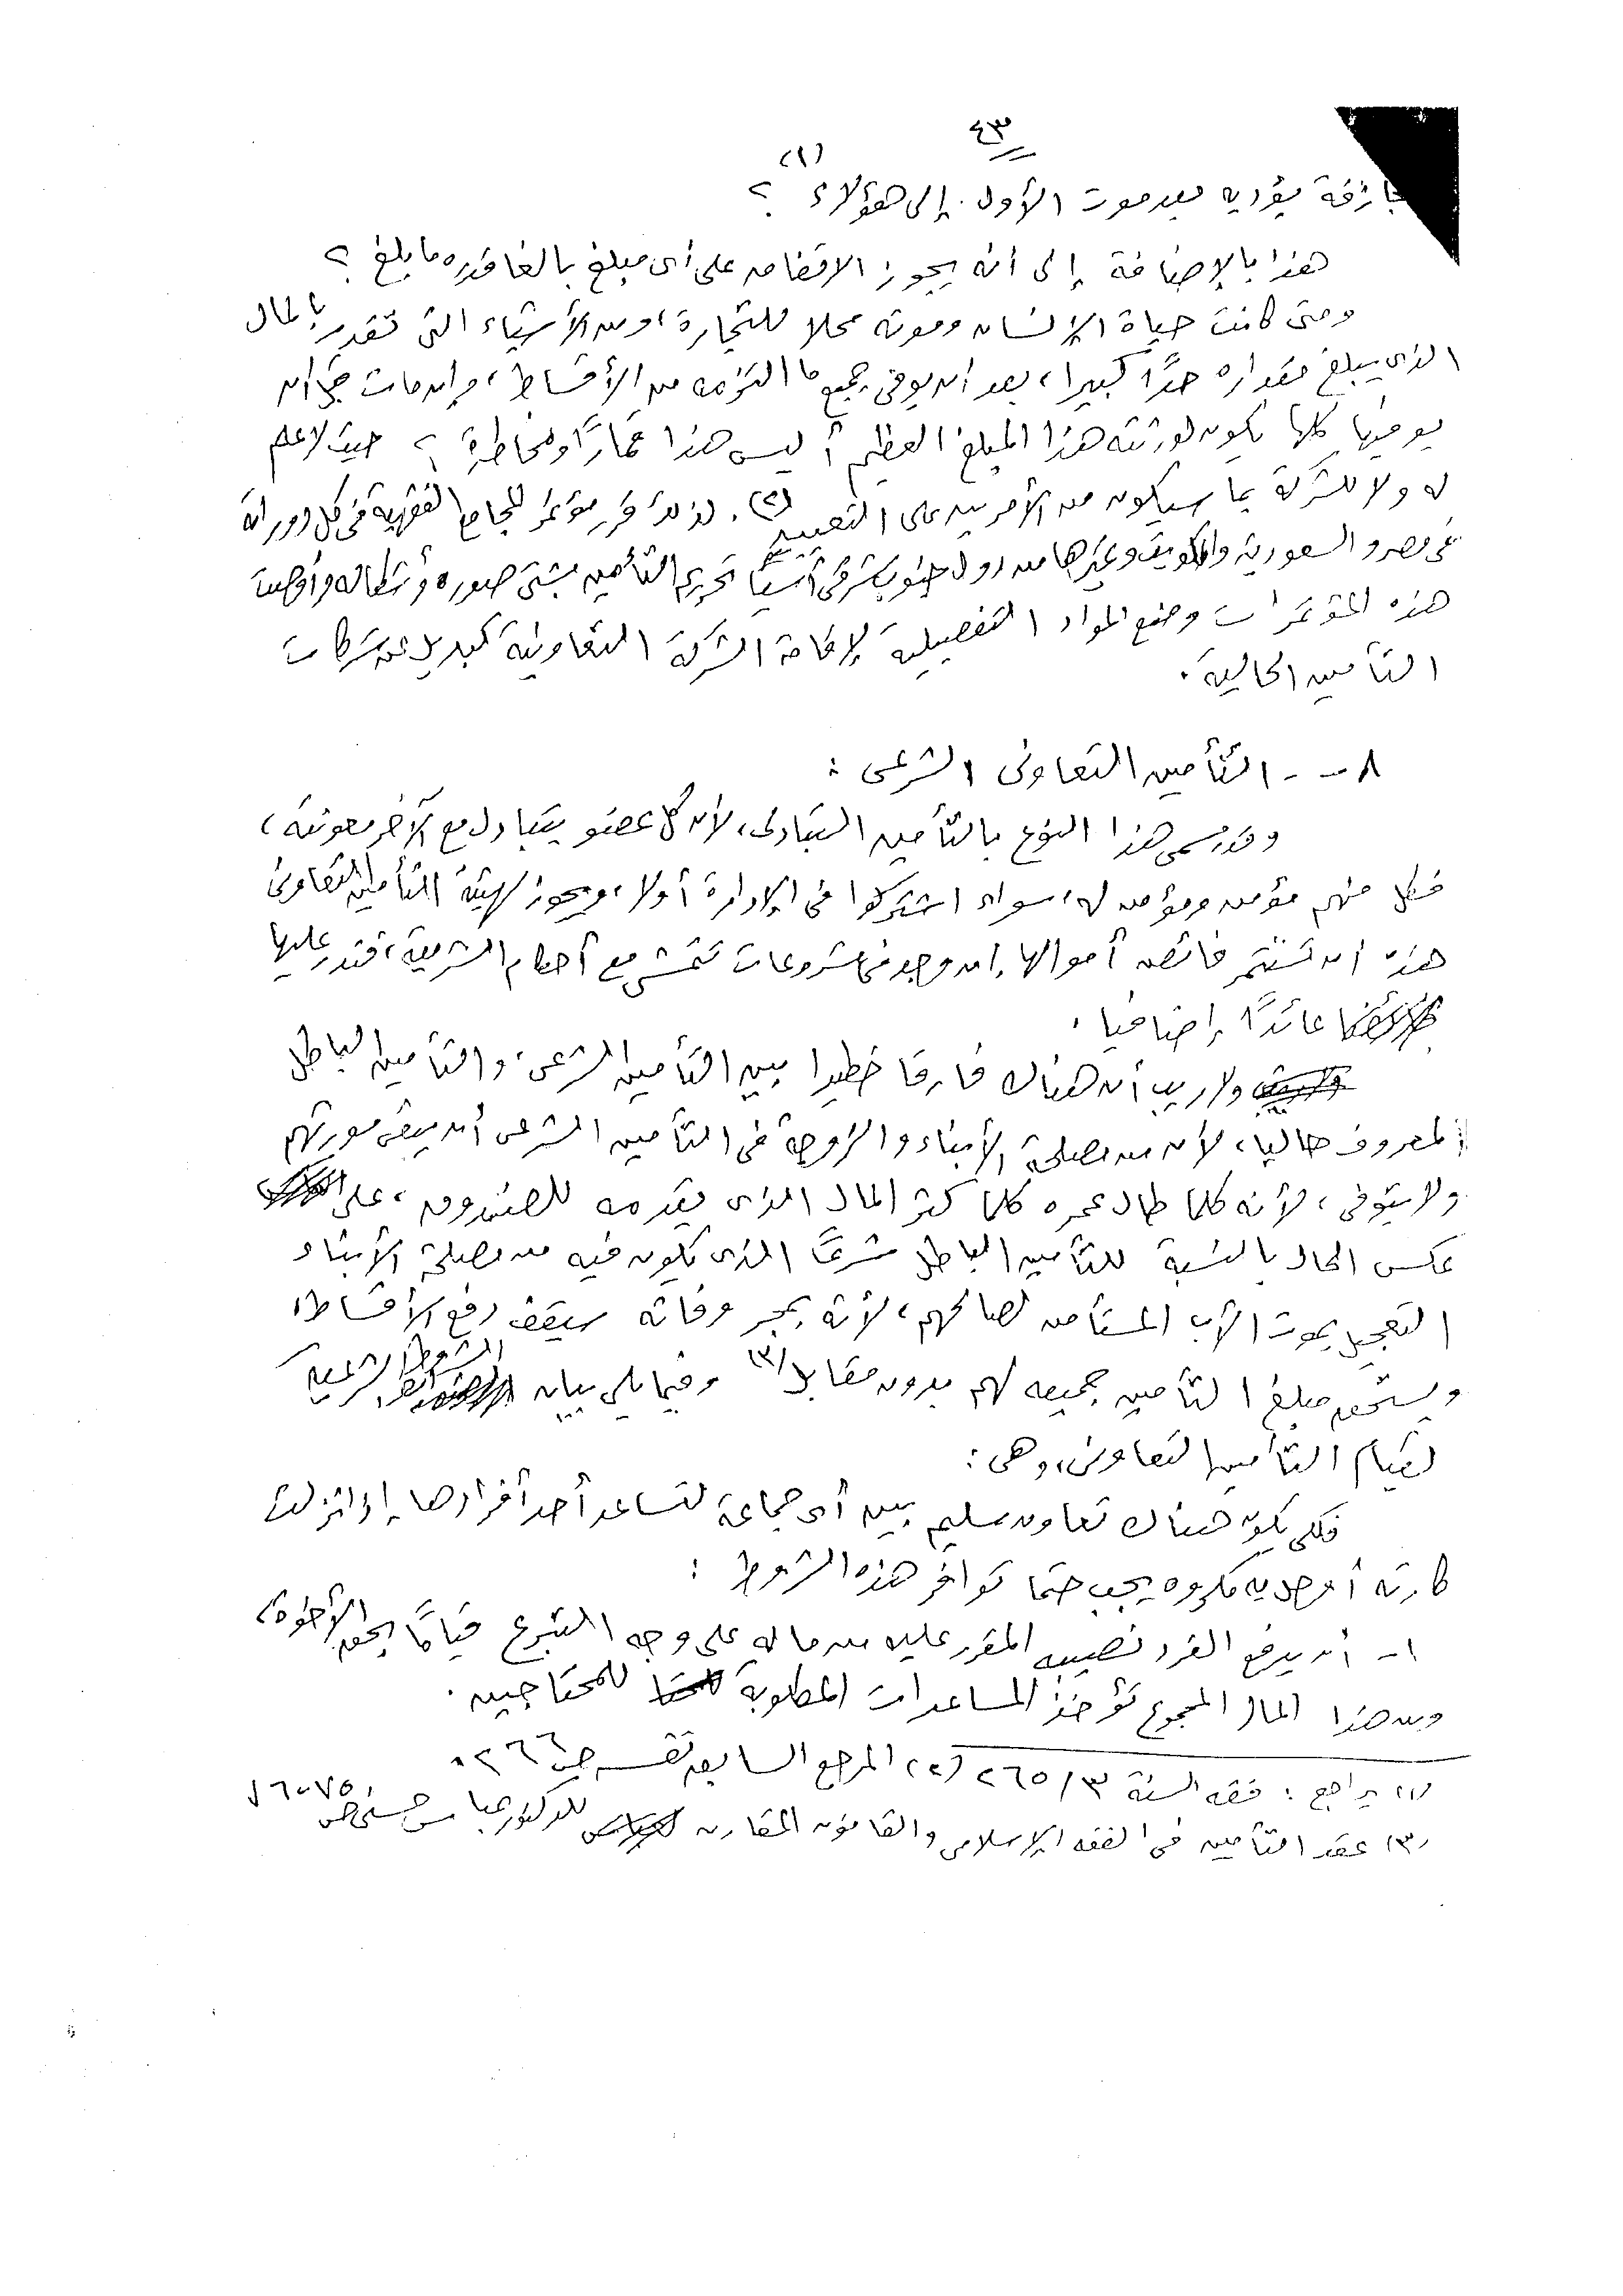 ٤٣
جازفة يؤديه بعد موت الأول إلى هؤلاء (١) ؟
هذا بالإضافة إلى أنه يجوز الاتفاق على أى مبلغ بالغا قدره ما بلغ ؟
ومتى كانت حياة الإنسان وموته محلا للتجارة، ومن الأشياء التى تقدر بالمال
الذى يبلغ مقداره حدًّا كبيرا، بعد أن يوفى جميع ما التزمه من الأقساط، وإن مات قبل أن
يوفيها كلها يكون لورثته هذا المبلغ العظيم أليس هذا قمارًا ومخاطرة ؟ حيث لا علم
له ولا للشركة بما سيكون من الأمرين على التعيين (٢). لذلك قرر مؤتمر المجامع الفقهية فى كل دوراته
فى مصر والسعودية والكويت وغيرها من دول جنوب شرقى آسيا تحريم التأمين بشتى صوره وأشكاله وأوصت
هذه المؤتمرات وضع المواد التفصيلية لإقامة الشركة التعاونية كبديل عن شركات
التأمين الحالية.
٨ - - التأمين التعاونى الشرعى :
وقد سمى هذا النوع بالتأمين التبادلى، لأن كل عضو يتبادل مع الآخر معونته،
فكل منهم مؤمن ومؤمن له، سواء اشتركوا فى الإدارة أو لا، ويجوز لهيئة التأمين التعاونى
هذه أن تستثمر فائض أموالها إن وجد فى مشروعات تتمشى مع أحكام الشريعة، فتدر عليها
عائدًا إضافيا.
ولا ريب أن هناك فارقا خطيرا بين التأمين الشرعى، والتأمين الباطل
المعروف حاليا، لأن من مصلحة الأبناء والزوجة فى التأمين الشرعى أن يبقى مورثهم
ولا يتوفى، لأنه كلما طال عمره كلما كثر المال الذى يقدمه للصندوق، على
عكس الحال بالنسبة للتأمين الباطل شرعًا الذى يكون فيه من مصلحة الأبناء
التعجيل بموت الأب المستأمن لصالحهم، لأنه بمجر وفاته سيقف دفع الأقساط،
ويستحق مبلغ التأمين جميعه لهم بدون مقابل (٣) وفيما يلى بيان الشروط الشرعية
لقيام التأمين التعاونى، وهى :
فلكى يكون هناك تعاون سليم بين أى جماعة لتساعد أحد أفرادها إذا نزلت
كارثة أو حل به مكروه يجب حتما توافر هذه الشروط :
١ - أن يدفع الفرد نصيبه المقرر عليه من ماله على وجه التبرع قيامًا بحق الأخوة،
ومن هذا المال المجموع تؤخذ المساعدات المطلوبة للمحتاجين.
(١) يراجع : فقه السنة ٣/ ٢٦٥ (٢) المرجع السابق نفسه ص ٢٦٦.
(٣) عقد التأمين فى الفقه الإسلامى والقانون المقارن للدكتور عباس حسنى ص ٧٥